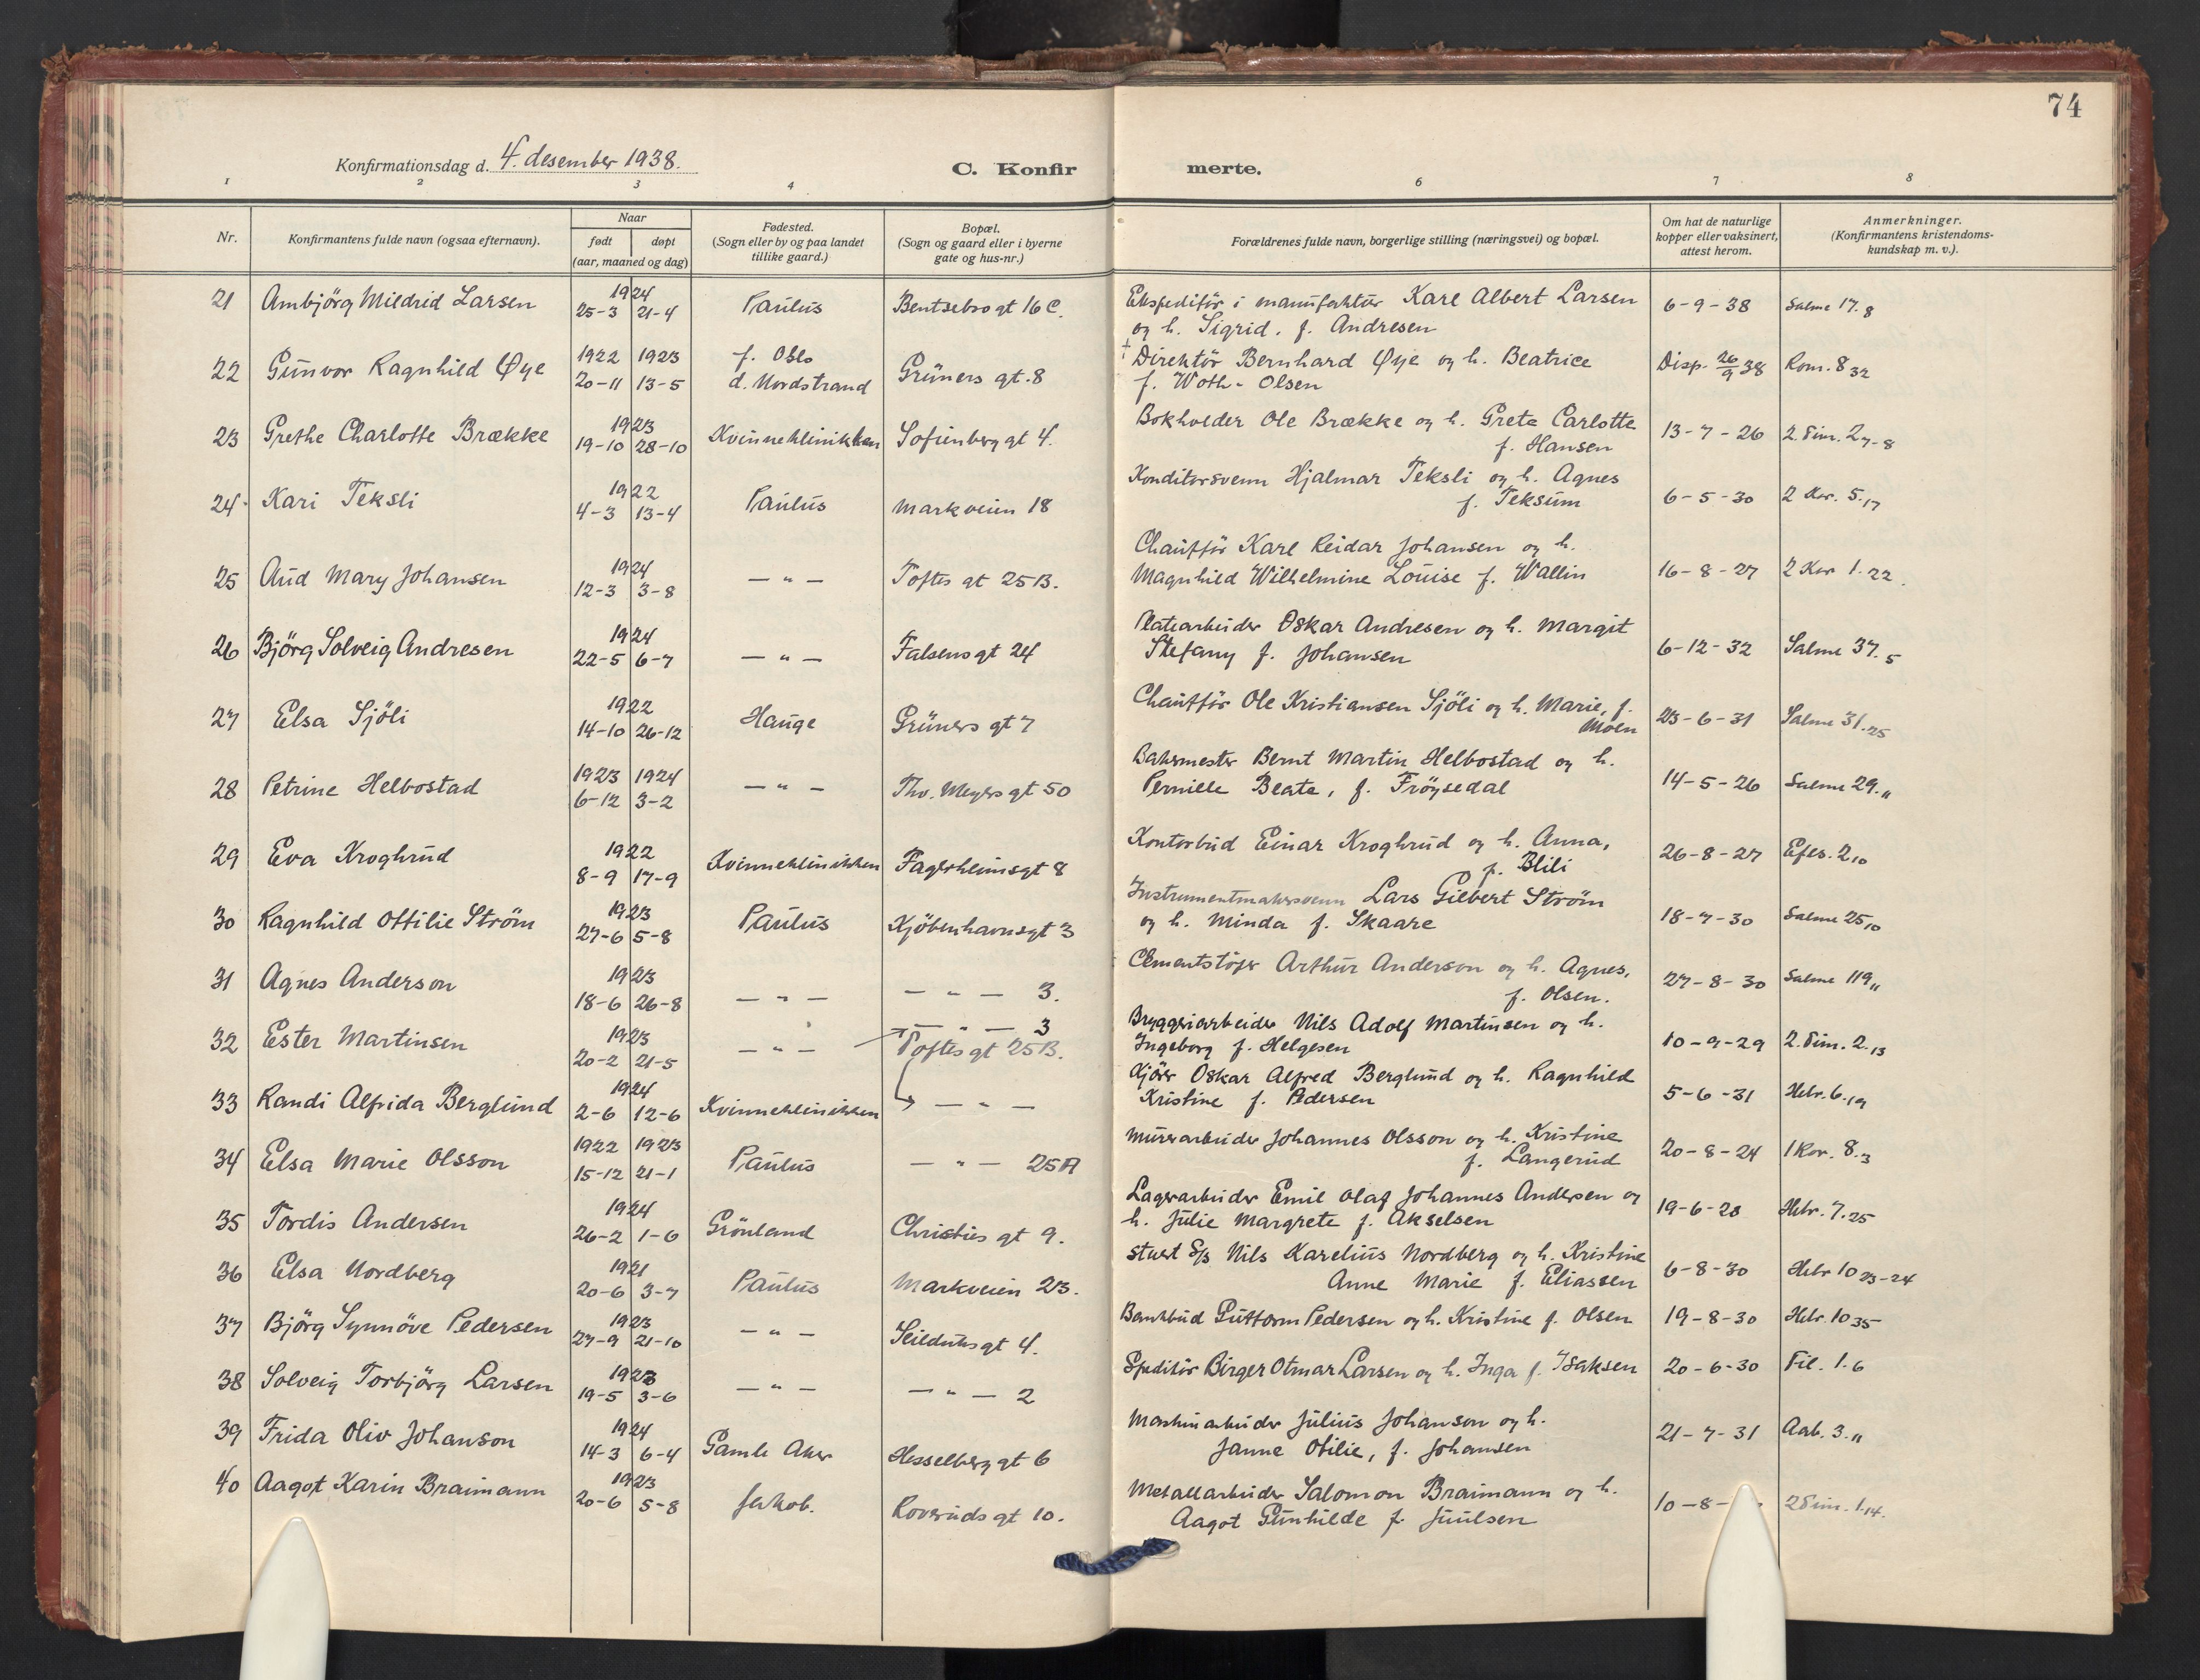 74
Konfirmationsdag d. 4. desember 1938.
C. Konfirmerte.
1 2 3 4 6 7 8
Nr.
Konfirmantens fulde navn (ogsaa efternavn).
Naar
født døpt
(aar, maaned og dag)
Fødested.
(Sogn eller by og paa landet
tillike gaard.)
Bopæl.
(Sogn og gaard eller i byerne
gate og hus-nr.)
Forældrenes fulde navn, borgerlige stilling (næringsvei) og bopæl.
Om hat de naturlige
kopper eller vaksinert,
attest herom.
Anmerkninger.
(Konfirmantens kristendoms-
kundskap m. v.).
21 Ambjörg Mildrid Larsen 1924 25-3 21-4 Paulus Bentsebrogt 16 C. Ekspeditør i manufaktur Karl Albert Larsen 6-9-38 Salme 17.8
og h. Sigrid. f. Andresen
22 Gunvor Ragnhild Øye 1922 20-11 1923 13-5 f. Oslo d. Nordstrand Grüners gt. 8 † Direktör Bernhard Øye og h. Beatrice Disp. 26/9 38 Rom. 8 32
f. Woth-Olsen
23 Grethe Charlotte Brække 1923 19-10 28-10 Kvinneklinikken Sofienberg gt 4. Bokholder Ole Brække og h. Grete Carlotte 13-7-26 2. Tim. 2 7-8
f. Hansen
24. Kari Teksli 1922 4-3 13-4 Paulus Markveien 18 Konditorsvenn Hjalmar Teksli og h. Agnes 6-5-30 2 Kor. 5.17
f. Teksum
25 Aud Mary Johansen 1924 12-3 3-8 — " — Toftes gt 25 B. Chaufför Karl Reidar Johansen og h. 16-8-27 2 Kor 1.22.
Magnhild Wilhelmine Louise f. Wallin
26 Björg Solveig Andresen 1924 22-5 6-7 — " — Falsens gt 24 Platearbeider Oskar Andresen og h. Margit 6-12-32 Salme 37.5
Stefany f. Johansen
27 Elsa Sjöli 1922 14-10 26-12 Hauge Grüners gt 7 Chaufför Ole Kristiansen Sjöli og h. Marie, f. 23-6-31 Salme 31.25
Moen
28 Petrine Helbostad 1923 6-12 1924 3-2 — " — Thv. Meyers gt 50 Bakermester Bernt Martin Helbostad og h. 14-5-26 Salme 29.11
Pernille Beata, f. Fröysedal
29 Eva Kroghrud 1922 8-9 17-9 Kvinneklinikken Fagerheimsgt 8 Kontorbud Einar Kroghrud og h. Anna, 26-8-27 Efes. 2 10
f. Blili
30 Ragnhild Ottilie Ström 1923 27-6 5-8 Paulus Kjöbenhavnsgt 3 Instrumentmakersvenn Lars Gilbert Ström 18-7-30 Salme 25 10
og h. Minda f. Skaare
31 Agnes Anderson 1923 18-6 26-8 — " — — " — 3. Cementstöper Arthur Anderson og h. Agnes, 27-8-30 Salme 119 11
f. Olsen.
32 Ester Martinsen 1923 20-2 21-5 — " — — " — 3 Bryggeriarbeider Nils Adolf Martinsen og h. 10-9-29 2. Tim. 2.13
Toftes gt 25 B. Ingeborg f. Helgesen
33 Randi Alfrida Berglund 1924 2-6 12-6 Kvinneklinikken — " — Kjörer Oskar Alfred Berglund og h. Ragnhild 5-6-31 Hebr. 6.19
Kristine f. Pedersen
34 Elsa Marie Olsson 1922 15-12 1923 21-1 Paulus — " — 25 A Murerarbeider Johannes Olsson og h. Kristine 20-8-24 1 Kor. 8.3
f. Langerud
35 Tordis Andersen 1924 26-2 1-6 Grönland Christies gt 9. Lagerarbeider Emil Olaf Johannes Andersen og 19-6-28 Hebr. 7.25
h. Julie Margrete f. Akselsen
36 Elsa Nordberg 1921 20-6 3-7 Paulus Markveien 23. Nils Karelius Nordberg og h. Kristine 6-8-30 Hebr 10 23-24
Anne Marie f. Eliassen
37 Björg Synnöve Pedersen 1923 27-9 21-10 — " — Seilduks gt 4. Bankbud Guttorm Pedersen og h. Kristine f. Olsen 19-8-30 Hebr. 10 35
38 Solveig Torbjörg Larsen 1923 19-5 3-6 — " — — " — 2 Speditör Birger Otmar Larsen og h. Inga f. Isaksen 20-6-30 Fil. 1.6
39 Frida Oliv Johanson 1924 14-3 6-4 Gamle Aker Hesselberg gt 6 Maskinarbeider Julius Johanson og h. 21-7-31 Aab. 3.11
Janne Otilie, f. Johansen
40 Aagot Karin Braimann 1923 20-6 5-8 Jakob. Roveruds gt 10. Metallarbeider Salomon Braimann og h. 10-8- 2 Tim. 1.14.
Aagot Gunhilde f. Juulsen